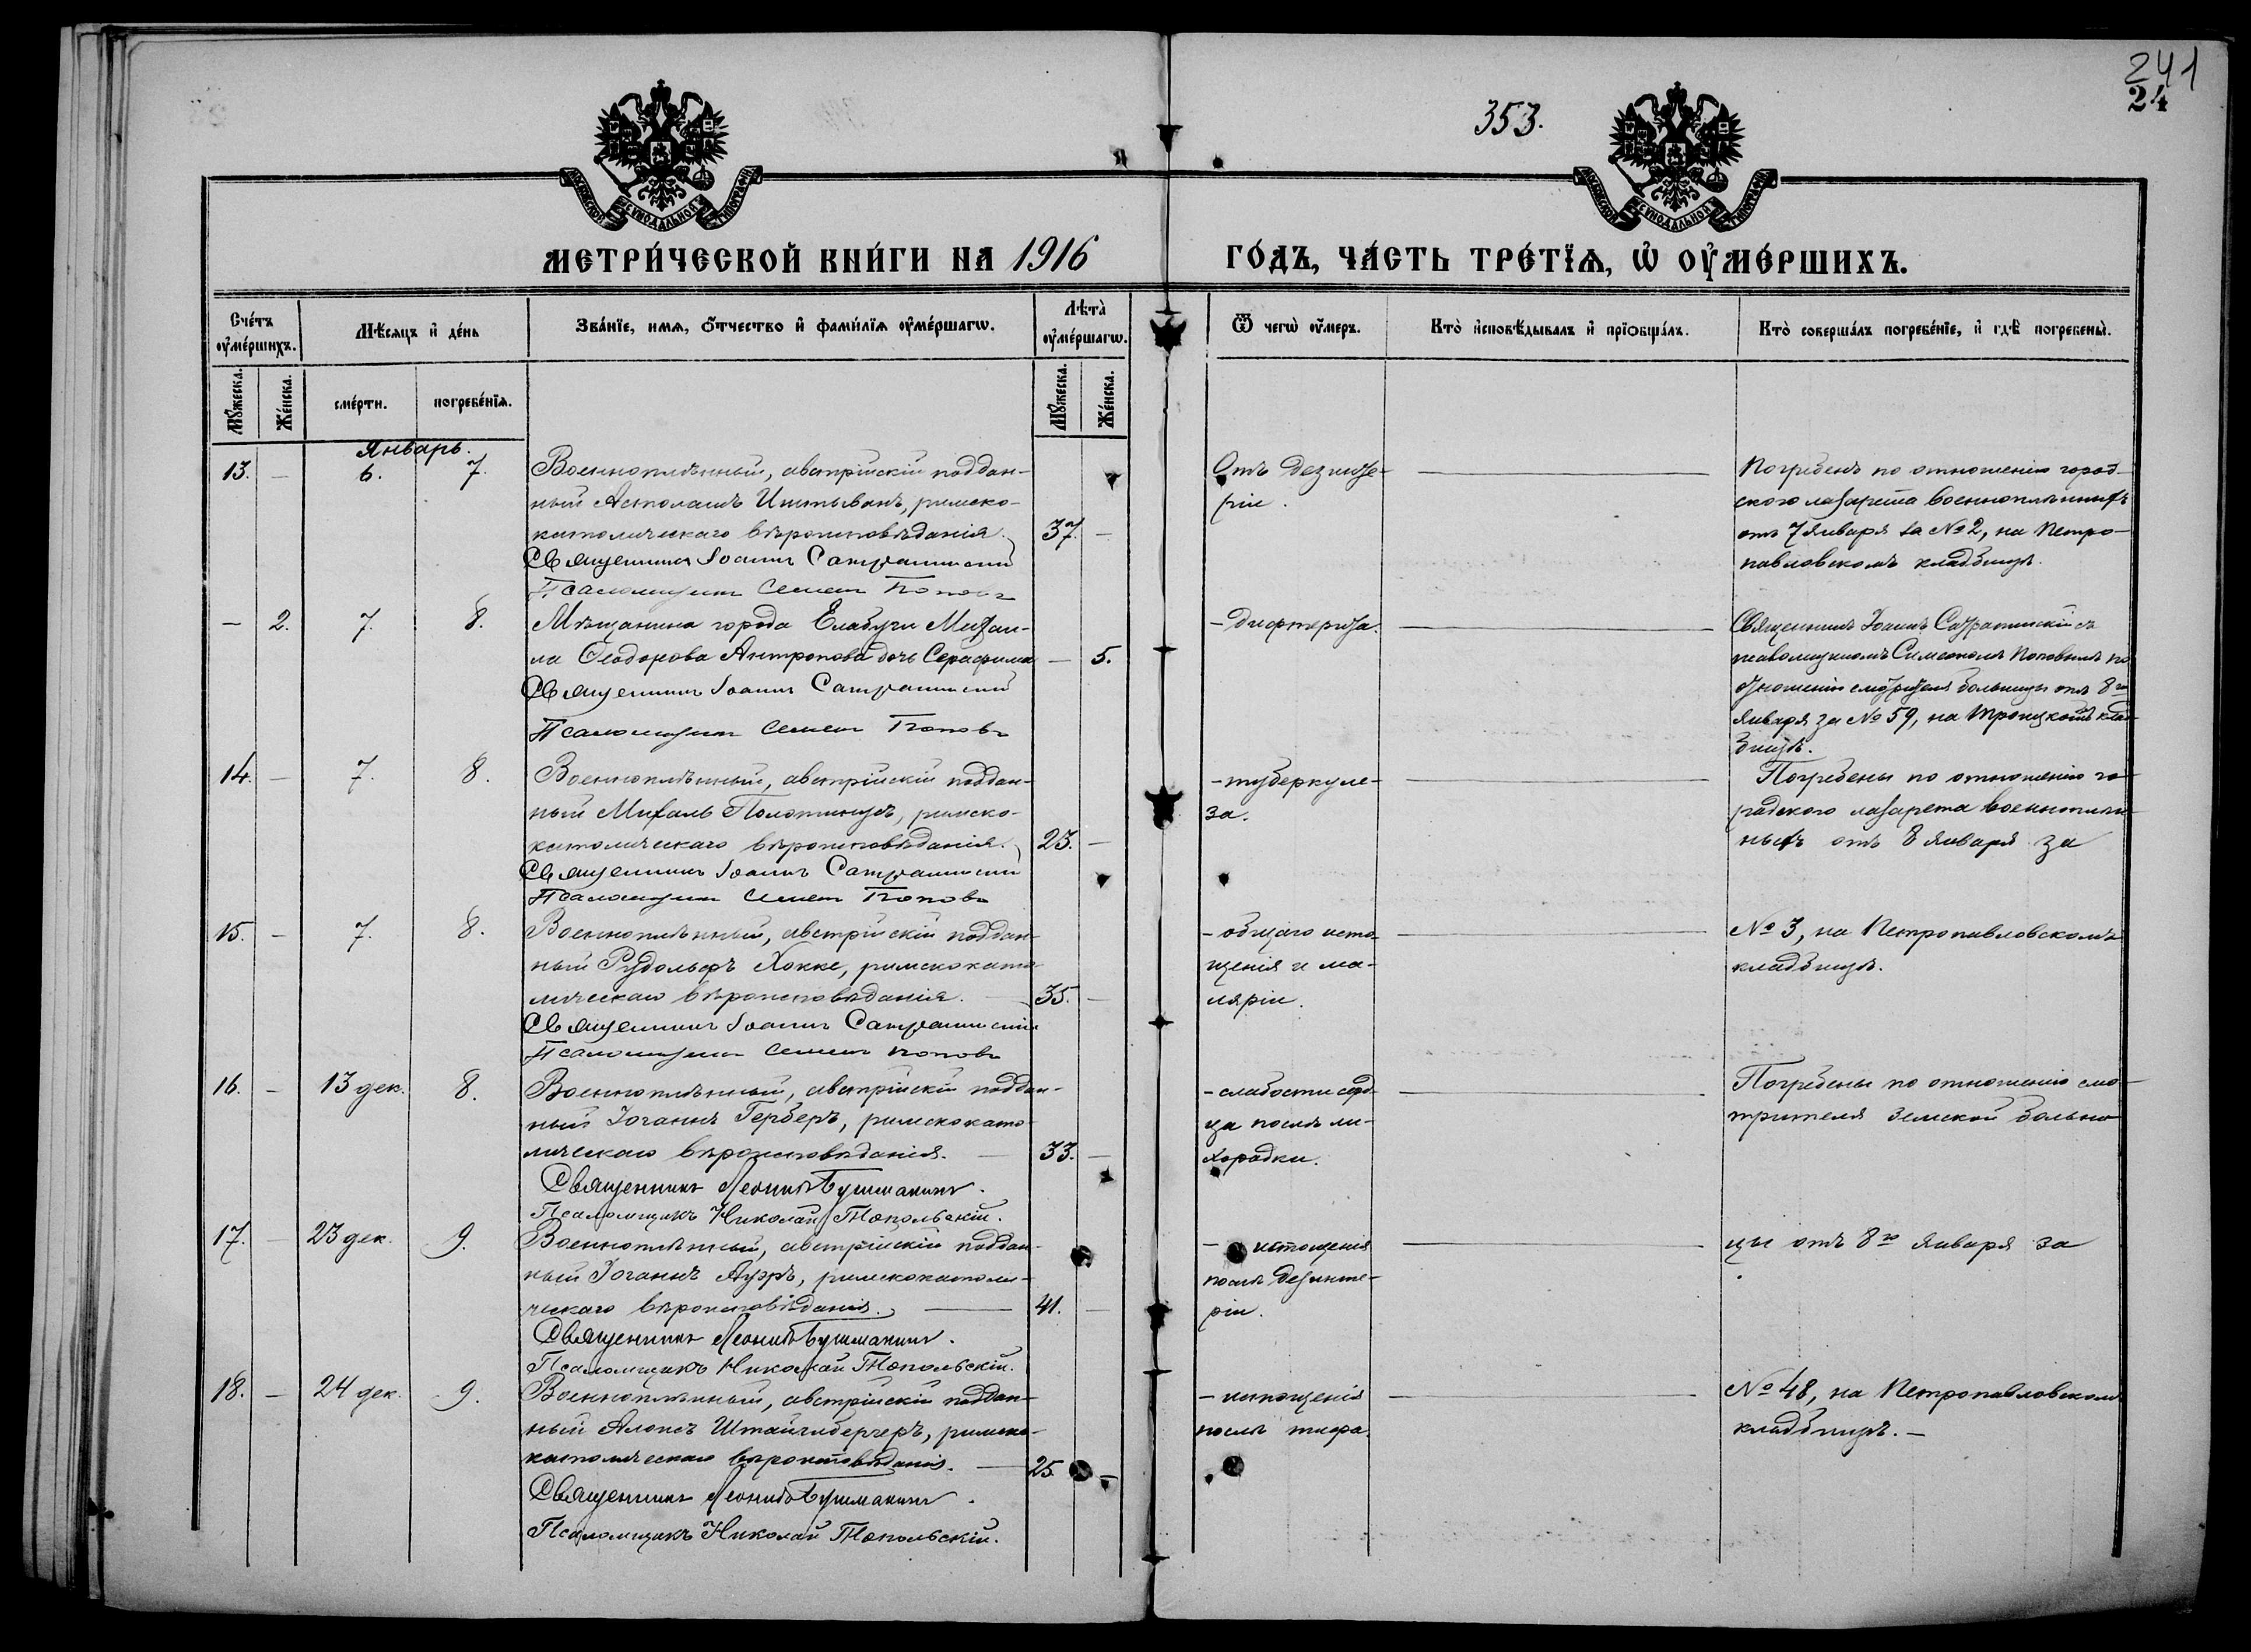 241
24
353.
МОСКОВСКОЙ СѴНОДАЛЬНОЙ ТИПОГРАФІИ
МОСКОВСКОЙ СѴНОДАЛЬНОЙ ТИПОГРАФІИ
МЕТРИ́ЧЕСКОЙ КНИ́ГИ НА 1916
ГО́ДЪ, ЧА́СТЬ ТРЕ́ТЇѦ, Ѡ҆ ОУ҆МЕ́РШИХЪ.
Сче́тъ оу҆ме́ршихъ.
Мѣ́сѧцъ и҆ де́нь
Зва́нїе, имѧ, ѻ҆́тчество и҆ фами́лїѧ оу҆ме́ршагѡ.
Лѣта̀ оу҆ме́ршагѡ.
Ѿ чегѡ̀ оу҆́меръ.
Кто̀ и҆сповѣ́дывалъ и҆ прїѻбща́лъ.
Кто̀ соверша́лъ погребе́нїе, и҆ гдѣ̀ погребены̀.
Мꙋ́жеска.
Же́нска.
сме́рти.
погребе́нїѧ.
Мꙋ́жеска.
Же́нска.
Январь.
13. — 6. 7.
Военноплѣнный, австрійскій поддан-
ный Иштыванъ, римско-
католическаго вѣроисповѣданія.
37. —
Священникъ Іоаннъ
Псаломщикъ Симеонъ Поповъ
Отъ дезинте-
ріи.
Погребенъ по отношенію город-
ского лазарета военноплѣнныхъ
отъ 7 Января за № 2, на Петро-
павловскомъ кладбищѣ.
— 2. 7. 8.
Мѣщанина города Елабуги Михаи-
ла Ѳеодорова Антропова дочь Серафима
— 5.
Священникъ Іоаннъ
Псаломщикъ Симеонъ Поповъ
— дифтерита.
Священникъ Іоаннъ съ
псаломщикомъ Симеономъ Поповымъ по
отношенію смотрителя больницы отъ 8го
Января за № 59, на Троицкомъ клад-
бищѣ.
14. — 7. 8.
Военноплѣнный, австрійскій поддан-
ный Михаль, римско-
католическаго вѣроисповѣданія.
23. —
Священникъ Іоаннъ
Псаломщикъ Симеонъ Поповъ
— туберкуле-
за.
Погребены по отношенію го-
родского лазарета военноплѣн-
ныхъ отъ 8 Января за
15. — 7. 8.
Военноплѣнный, австрійскій поддан-
ный Рудольфъ Хокке, римскокато-
лическаго вѣроисповѣданія.
35. —
Священникъ Іоаннъ
Псаломщикъ Симеонъ Поповъ
— общаго исто-
щенія и ма-
ляріи.
№ 3, на Петропавловскомъ
кладбищѣ.
16. — 13 дек. 8.
Военноплѣнный, австрійскій поддан-
ный Іоганнъ Герберъ, римскокато-
лическаго вѣроисповѣданія.
33. —
Священникъ Леонидъ Бушмакинъ.
Псаломщикъ Николай Топольскій.
— слабости серд-
ца послѣ ли-
хорадки.
Погребены по отношенію смо-
трителя Земской больни-
17. — 23 дек. 9.
Военноплѣнный, австрійскій поддан-
ный Іоганнъ Ауэръ, римскокатоли-
ческаго вѣроисповѣданія.
41. —
Священникъ Леонидъ Бушмакинъ.
Псаломщикъ Николай Топольскій.
— истощенія
послѣ дезинте-
ріи.
цы отъ 8го Января за
18. — 24 дек. 9.
Военноплѣнный, австрійскій поддан-
ный Алоисъ, римско-
католическаго вѣроисповѣданія.
25. —
Священникъ Леонидъ Бушмакинъ.
Псаломщикъ Николай Топольскій.
— истощенія
послѣ тифа.
№ 48, на Петропавловскомъ
кладбищѣ. —